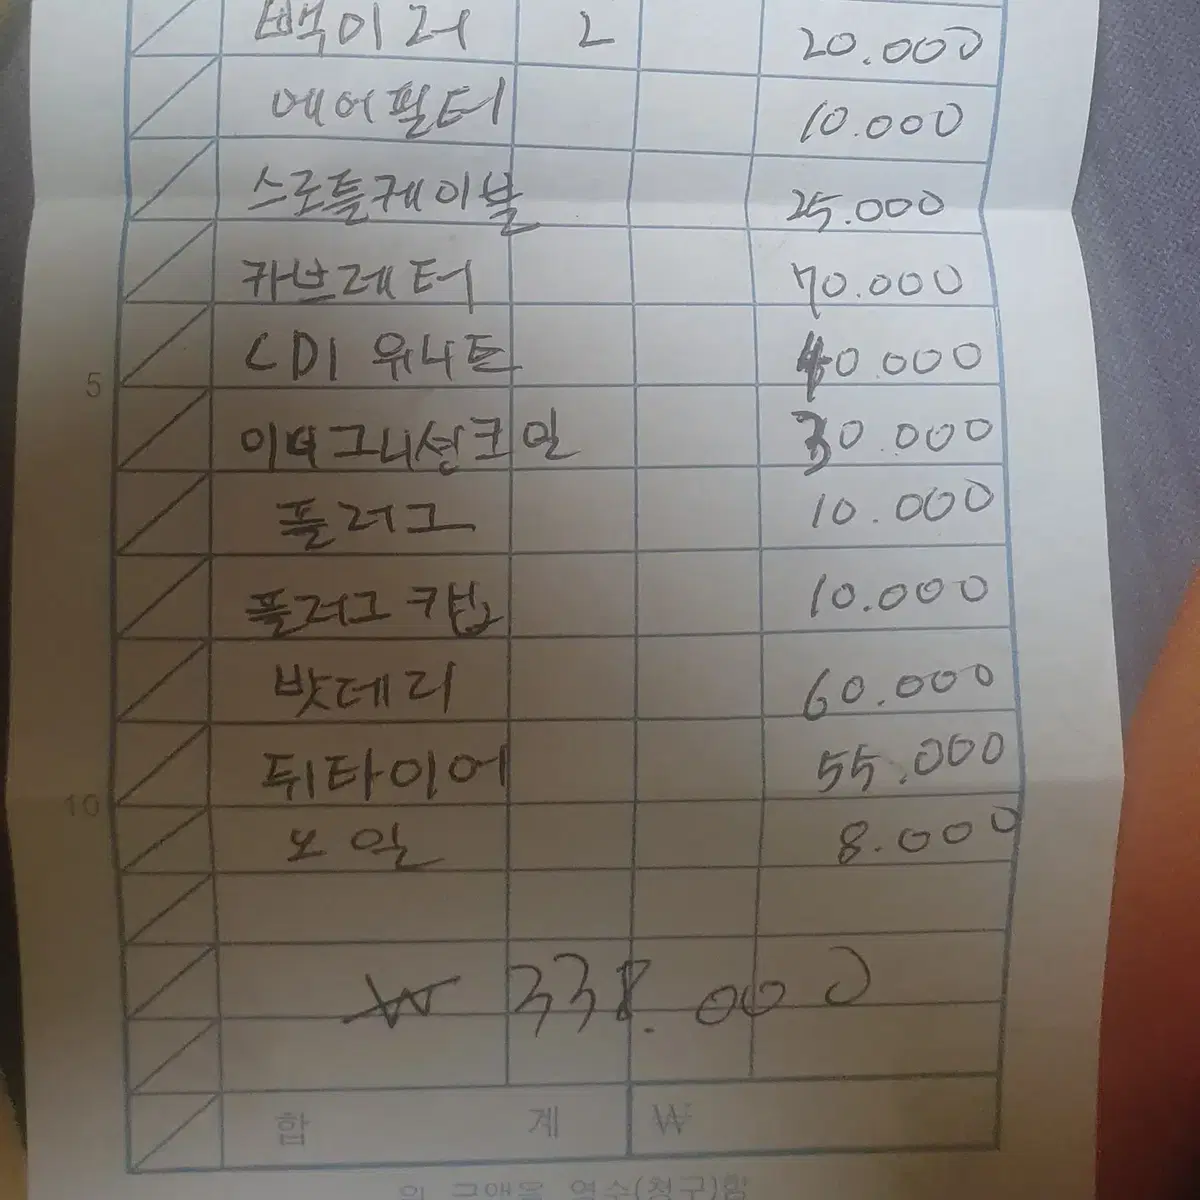 백미러 2 20.000
에어필터 10.000
스로틀케이블 25.000
카브레터 70.000
CDI 유니트 40.000
5
이더그니션코일 30.000
플러그 10.000
플러그 캡 10.000
밧데리 60.000
뒤타이어 55.000
10
오일 8.000
₩ 338.000
합 계 ₩
위 금액을 영수(청구)함